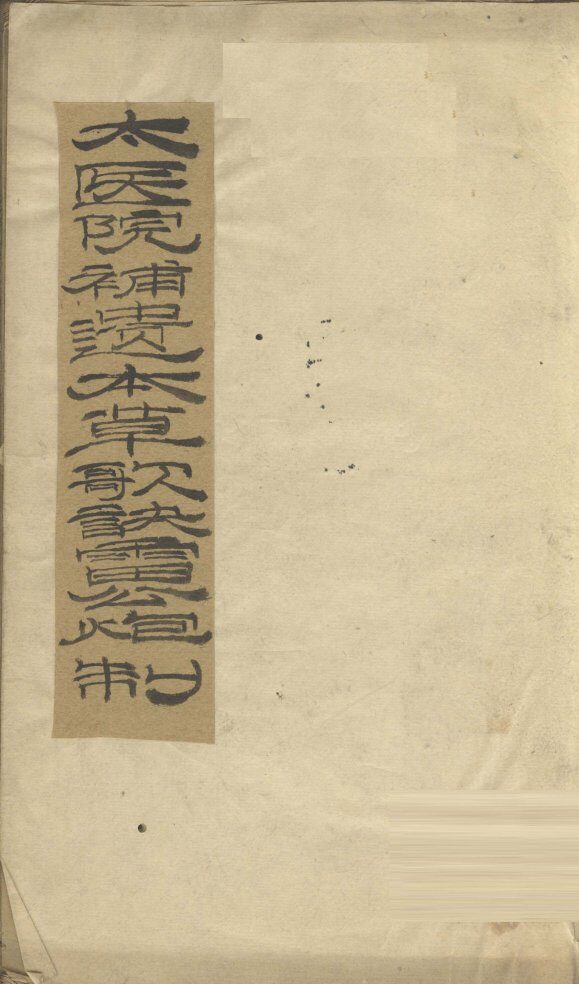 太医院補遺本草歌訣雷公炮制